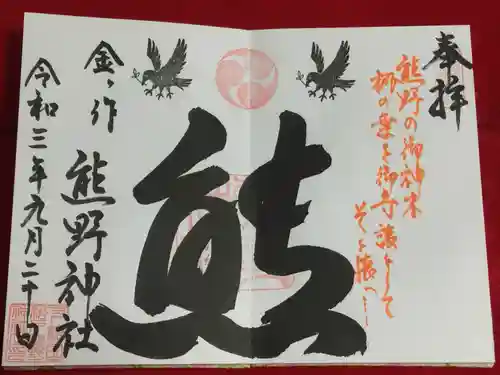 奉拝
熊野の御神木
梛の葉を御守護として
そを懐へ
熊
金ヶ作
熊野神社
令和三年九月二十日